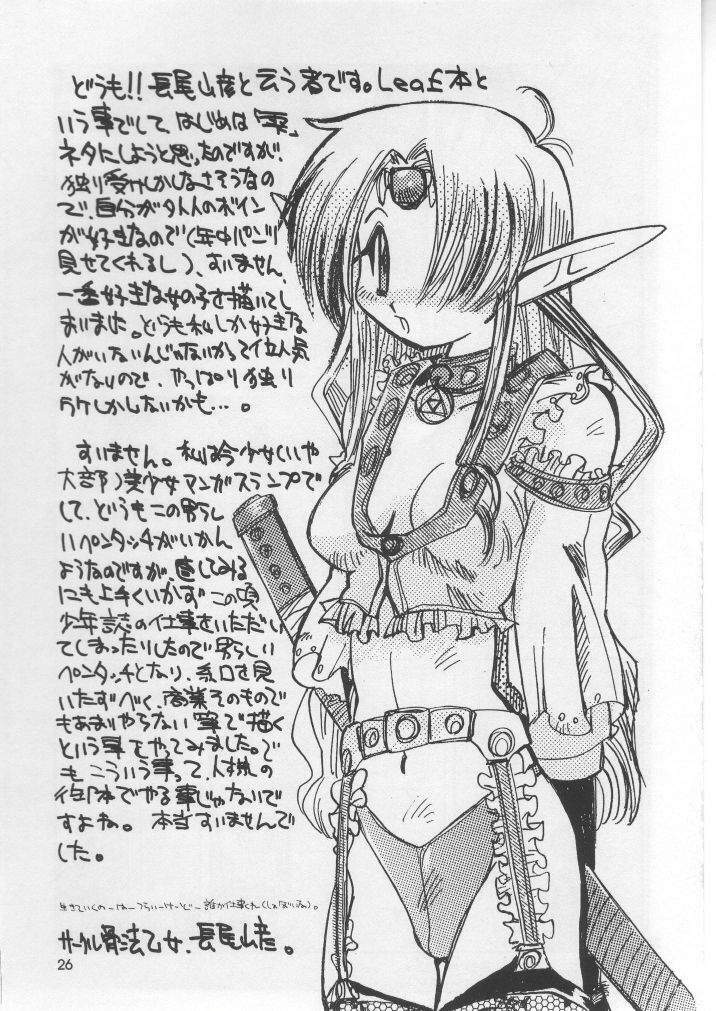 どうも!! 長尾山彦と云う者です。Leaf本と
いう事でして、はじめは「雫」
ネタにしようと思ったのですが、
独り受けしかしなさそうなの
で、自分が外人のボイン
が好きなので(年中パンツ
見せてくれるし)、すいません、
一番好きな女の子を描いてし
まいました。どうも私しか好きな
人がいないんじゃないかって位人気
がないので、やっぱり独り
ウケしかしないかも…。
すいません。私は今少女(いや
大部)美少女マンガスランプで
して、どうもこの男らし
いペンタッチがいかん
ようなのですが直してみる
にも上手くいかずこの頃
少年誌の仕事をいただい
てしまったりしたので男らしい
ペンタッチとなり、糸口を見
いだすべく、商業そのもので
もあまりやらない筆で描く
という事をやってみました。で
もこういう事って、人様の
本でやる事じゃないで
すよね。本当すいませんで
した。
生きていくのーはーつらいーけーどー誰か仕事くれー
サークル骨法乙女、長尾山彦。
26